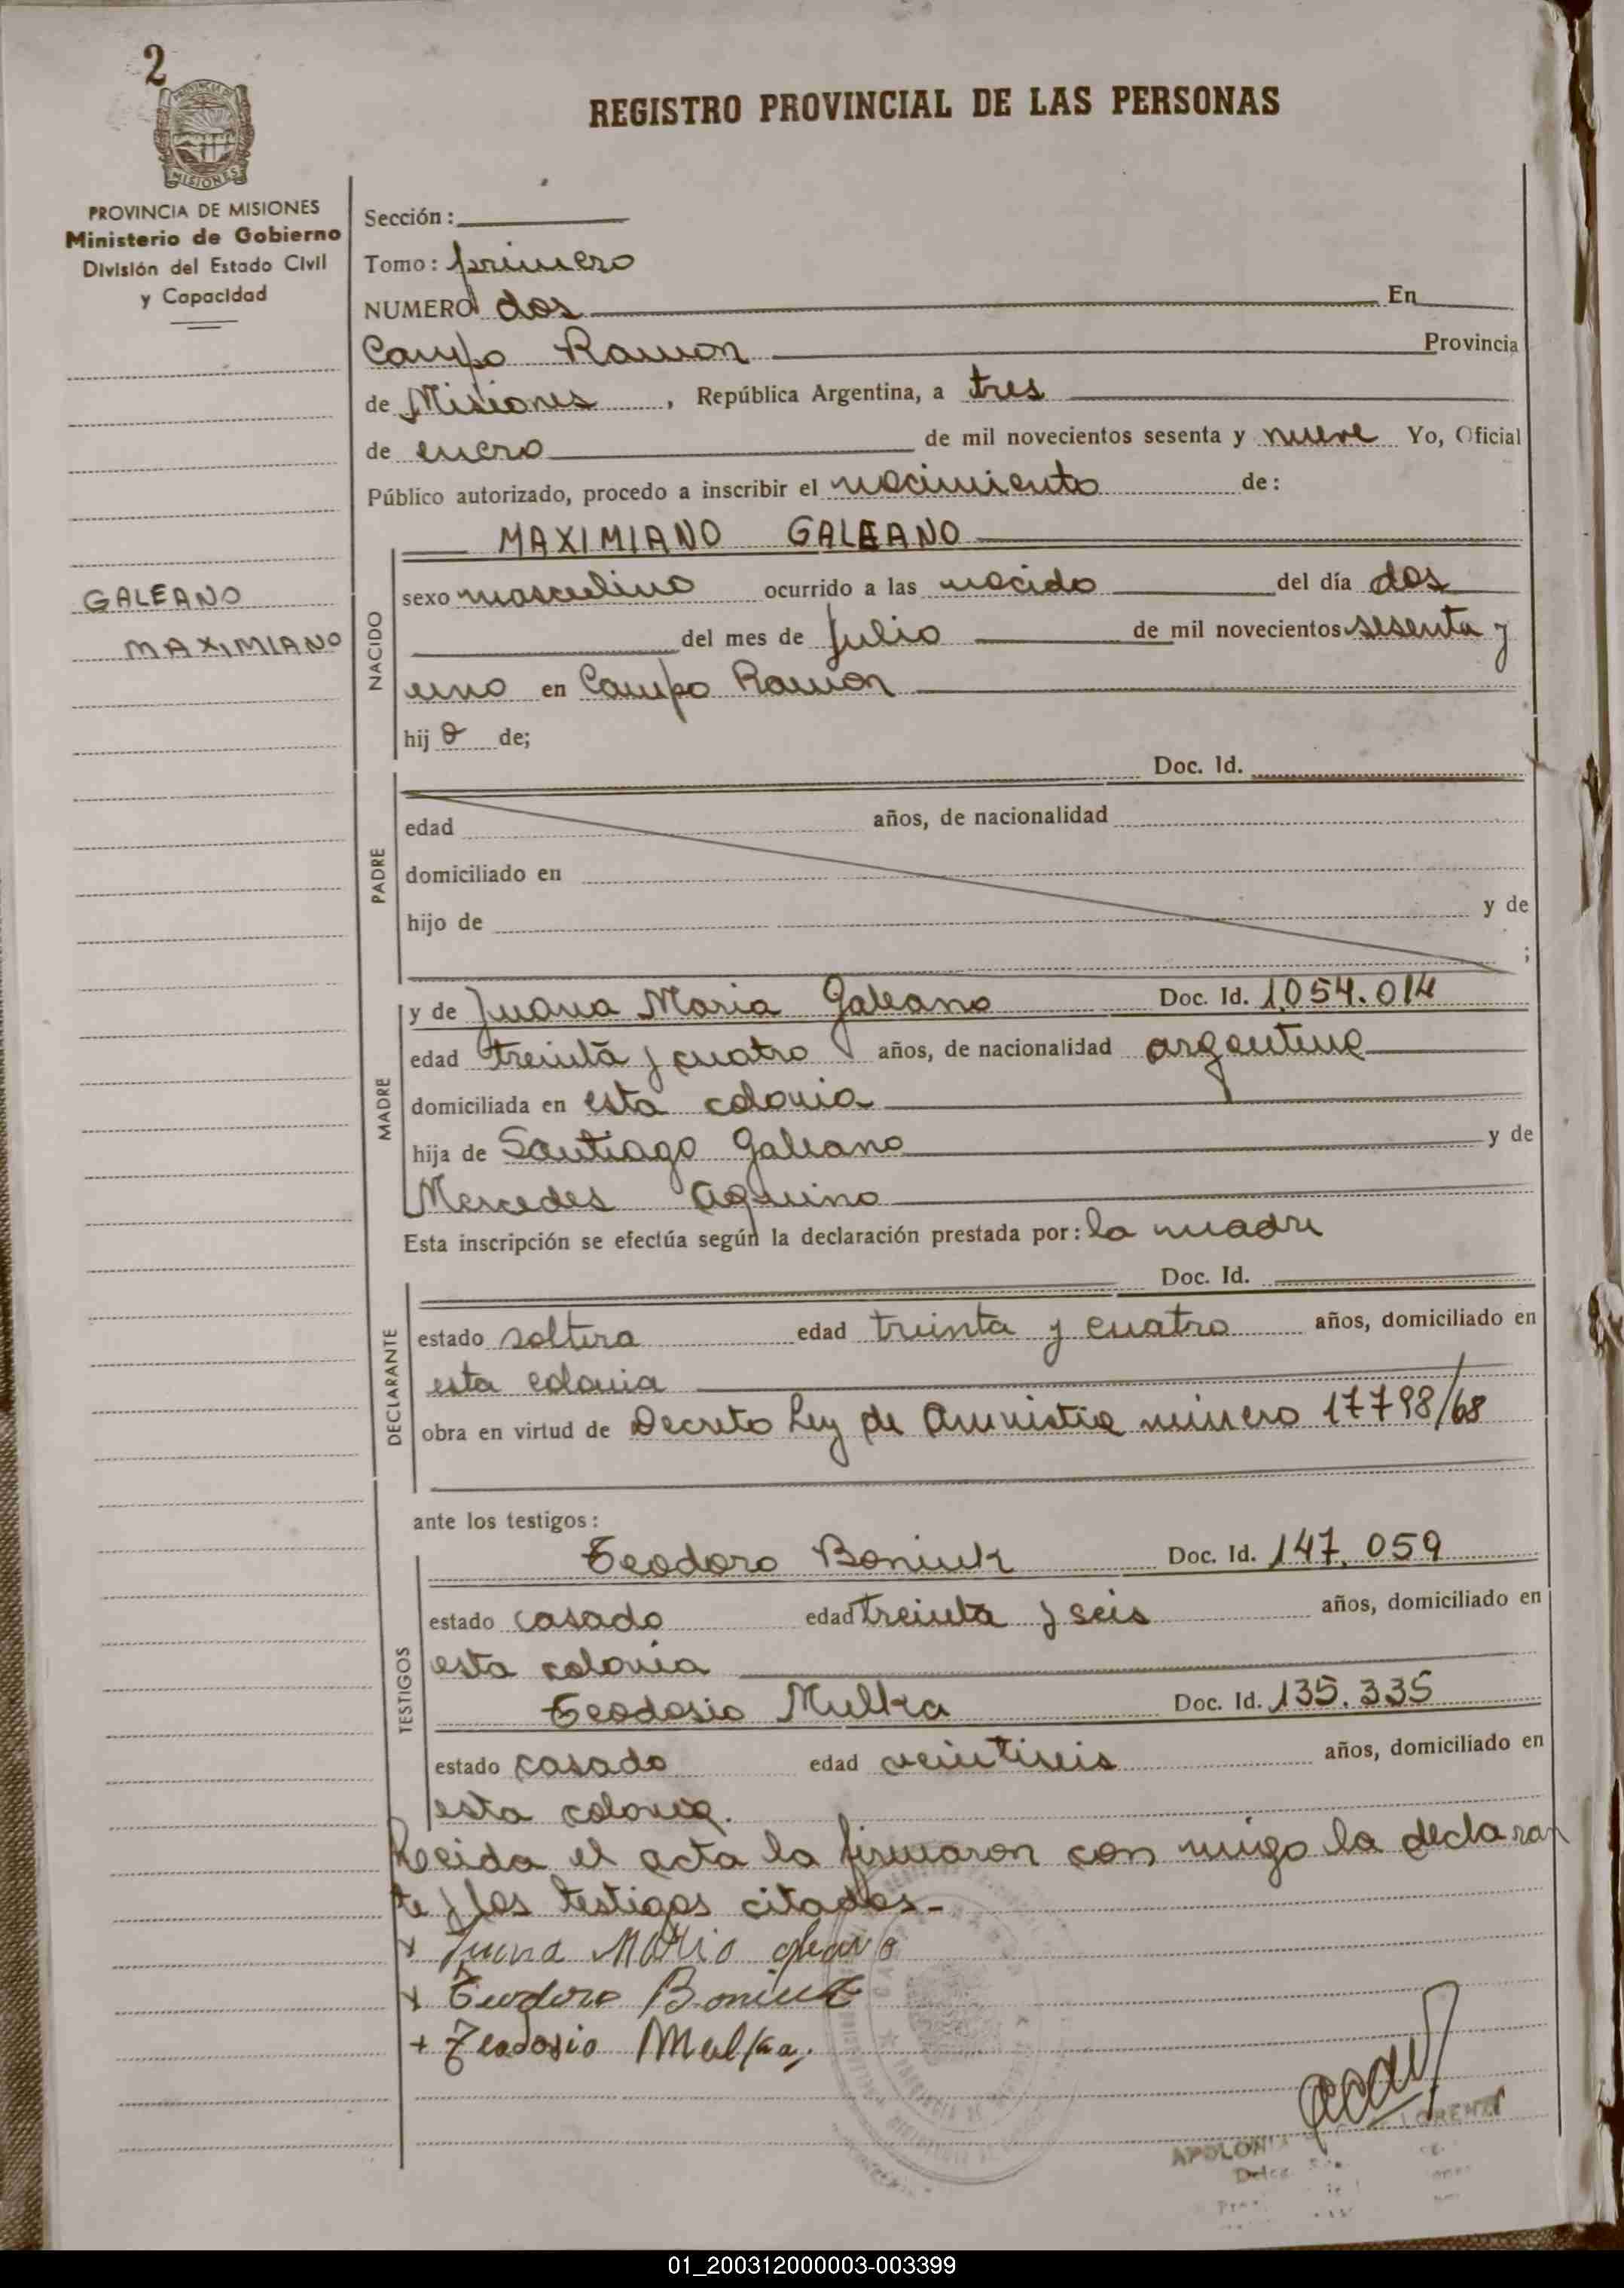 2
PROVINCIA DE MISIONES
MISIONES
PROVINCIA DE MISIONES
Ministerio de Gobierno
División del Estado Civil
y Capacidad
GALEANO
MAXIMIANO
REGISTRO PROVINCIAL DE LAS PERSONAS
Sección:
Tomo: primero
NUMERO dos En
Campo Ramon Provincia
de Misiones, República Argentina, a tres
de enero de mil novecientos sesenta y nueve Yo, Oficial
Público autorizado, procedo a inscribir el nacimiento de:
MAXIMIANO GALEANO
NACIDO
sexo masculino ocurrido a las nacido del día dos
del mes de Julio de mil novecientos sesenta y
uno en Campo Ramon
hij o de;
Doc. Id.
PADRE
edad años, de nacionalidad
domiciliado en
hijo de y de
;
MADRE
y de Juana Maria Galeano Doc. Id. 1.054.014
edad treinta y cuatro años, de nacionalidad argentina
domiciliada en esta colonia
hija de Santiago Galeano y de
Mercedes Aquino
Esta inscripción se efectúa según la declaración prestada por: la madre
Doc. Id.
DECLARANTE
estado soltera edad treinta y cuatro años, domiciliado en
esta colonia
obra en virtud de Decreto Ley de Amnistia número 17798/68
ante los testigos:
TESTIGOS
Teodoro Boniuk Doc. Id. 147.059
estado casado edad treinta y seis años, domiciliado en
esta colonia
Teodosio Mulka Doc. Id. 135.335
estado casado edad veintiseis años, domiciliado en
esta colonia.
Leida el acta la firmaron con migo la declaran
te y los testigos citados.-
x Juana Maria
x Teodoro Boniuk
+ Teodosio Mulka,
LORENZ
01_200312000003-003399